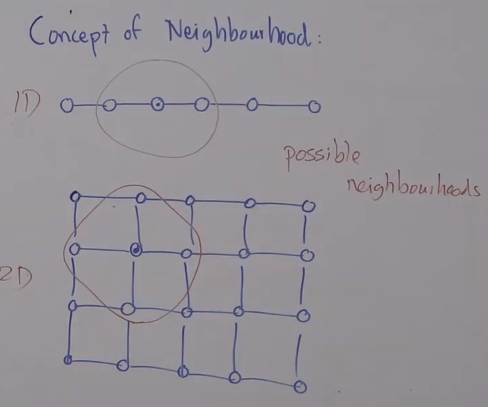 Concept of Neighbourhood:
1D
possible
neighbourhoods
2D